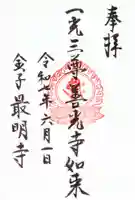 奉拝
一光三尊善光寺如来
令和七年六月一日
金子最明寺